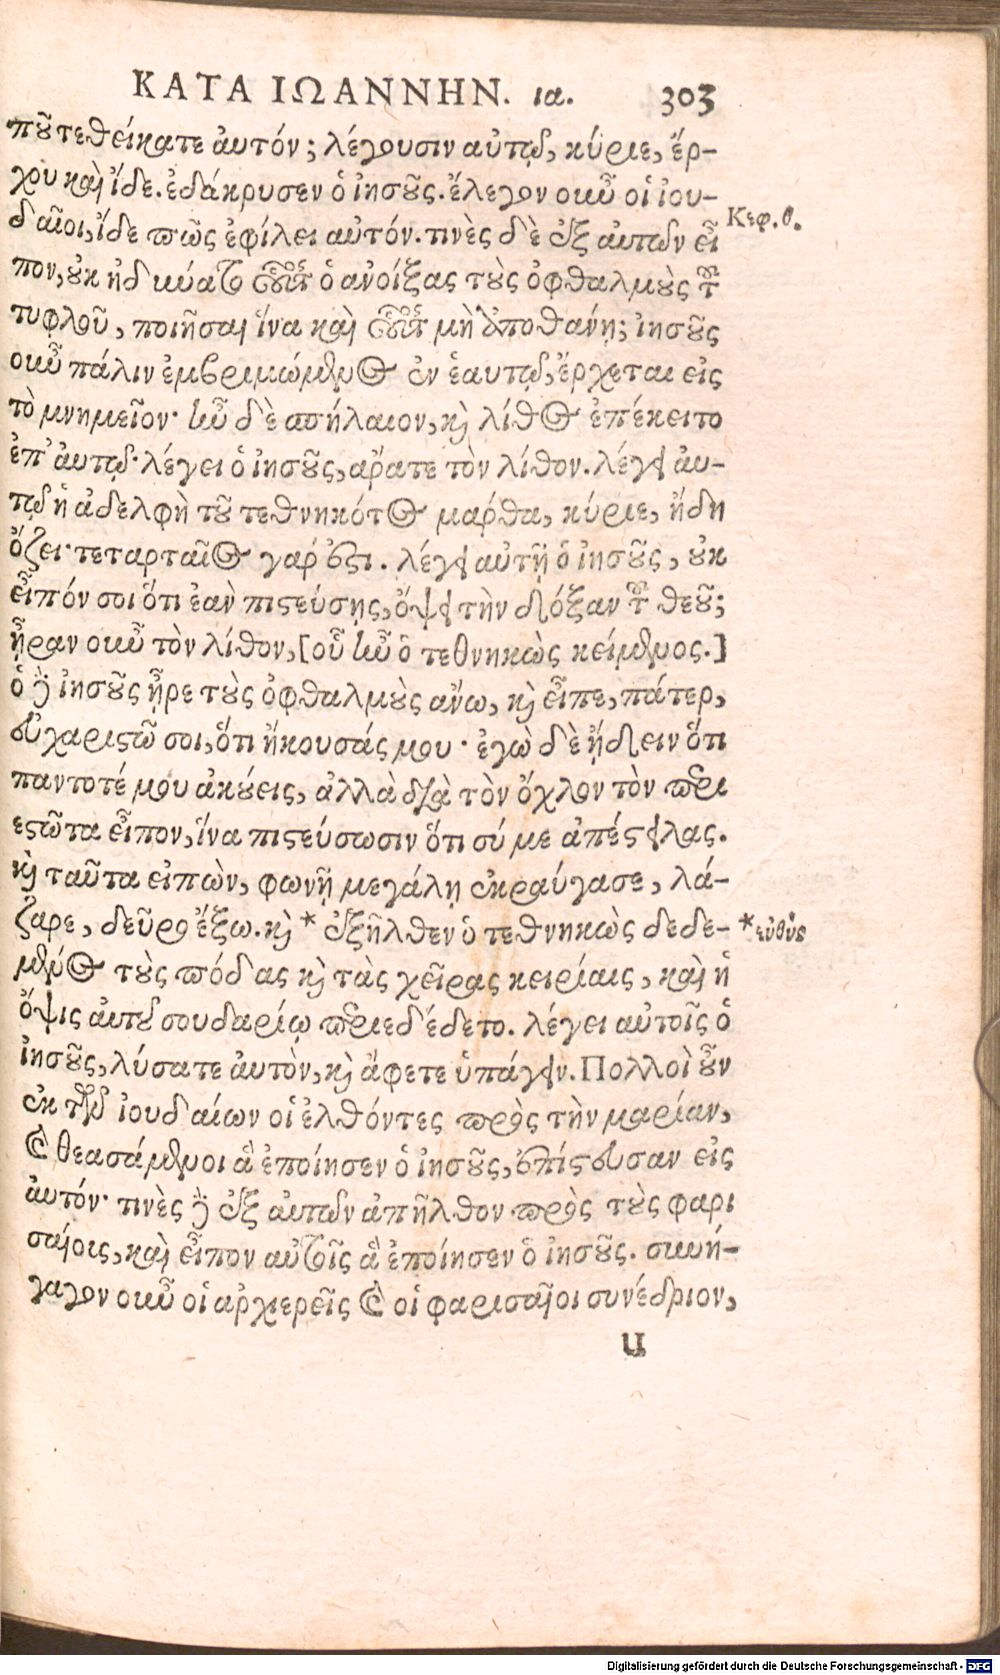 ΚΑΤΑ ΙΩΑΝΝΗΝ. ια. 303
ποῦ τεθείκατε ἀυτόν; λέγουσιν αὐτῷ, κύριε, ἔρ-
χου καὶ ἴδε. ἐδάκρυσεν ὁ ἰησοῦς. ἔλεγον οιωῦ οἱ ἰου-
δαῖοι, ἴδε πῶς ἐφίλει αὐτόν. τινὲς δὲ ἐξ αὐτῶν εἶ
Κεφ. θ.
πον, οὐκ ἠδύνατο οὗτος ὁ ἀνοίξας τοὺς ὀφθαλμοὺς τοῦ
τυφλοῦ, ποιῆσαι ἵνα καὶ οὗτος μὴ ἀποθάνῃ; ἰησοῦς
οὖν πάλιν ἐμβριμώμενος ἐν ἑαυτῷ, ἔρχεται εἰς
τὸ μνημεῖον· ἦν δὲ σπήλαιον, καὶ λίθος ἐπέκειτο
ἐπ' ἀυτῷ· λέγει ὁ ἰησοῦς, ἄρατε τὸν λίθον. λέγει ἀυ-
τῷ ἡ ἀδελφὴ τοῦ τεθνηκότος μάρθα, κύριε, ἤδη
ὄζει· τεταρταῖος γάρ ἐστι. λέγει αὐτῇ ὁ ἰησοῦς, οὐκ
εἶπόν σοι ὅτι ἐὰν πιστεύσῃς, ὄψει τὴν δόξαν τοῦ θεοῦ;
ἦραν οὖν τὸν λίθον, [οὗ ἦν ὁ τεθνηκὼς κείμενος.]
ὁ δὲ ἰησοῦς ἦρε τοὺς ὀφθαλμοὺς ἄνω, καὶ εἶπε, πάτερ,
εὐχαριστῶ σοι, ὅτι ἤκουσάς μου· ἐγὼ δὲ ᾔδειν ὅτι
παντοτέ μου ἀκούεις, ἀλλὰ διὰ τὸν ὄχλον τὸν περι
εστῶτα εἶπον, ἵνα πιστεύσωσιν ὅτι σύ με ἀπέστειλας.
καὶ ταῦτα εἰπὼν, φωνῇ μεγάλῃ ἐκραύγασε, λά-
ζαρε, δεῦρο ἔξω. καὶ * ἐξῆλθεν ὁ τεθνηκὼς δεδε-
* εὐθὺς
μένος τοὺς πόδας καὶ τὰς χεῖρας κειρίαις, καὶ ἡ
ὄψις ἀυτοῦ σουδαρίῳ περιεδέδετο. λέγει αὐτοῖς ὁ
ἰησοῦς, λύσατε ἀυτὸν, καὶ ἄφετε ὑπάγειν. Πολλοὶ οὖν
ἐκ τῶν ἰουδαίων οἱ ἐλθόντες πρὸς τὴν μαρίαν,
καὶ θεασάμενοι ἃ ἐποίησεν ὁ ἰησοῦς, ἐπίστευσαν εἰς
ἀυτόν· τινὲς δὲ ἐξ αὐτῶν ἀπῆλθον πρὸς τοὺς φαρι
σαίοις, καὶ εἶπον αὐτοῖς ἃ ἐποίησεν ὁ ἰησοῦς. συνή-
γαγον οὖν οἱ ἀρχιερεῖς καὶ οἱ φαρισαῖοι συνέδριον,
u
Digitalisierung gefördert durch die Deutsche Forschungsgemeinschaft - DFG